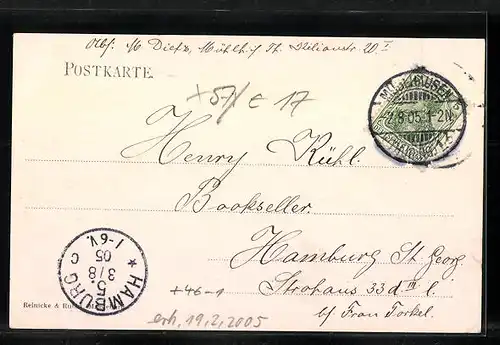 Abs: M Dietz, Mühlh. i/ Th. Kilianstr. 20 I
POSTKARTE.
+57/ E 17
MÜHLHAUSEN
2.8.05.1-2N.
(THÜRING.)
Henry Kühl.
Bookseller.
Hamburg St. Georg
Strohaus 33d III l
b/ Frau Torkel.
HAMBURG
5.
3/8
05
1-6V.
C
+46-1
Reinicke &
erh. 19.2.2005